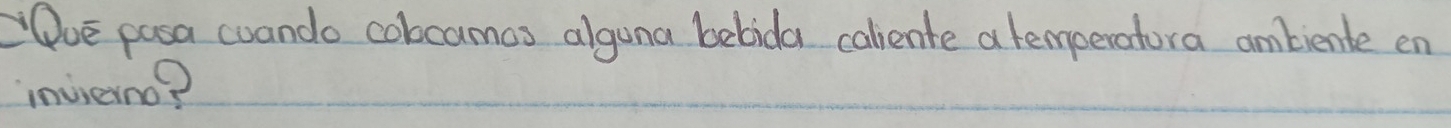 -¿Qué pasa cuando colocamos alguna bebida caliente a temperatura ambiente en
invierno?